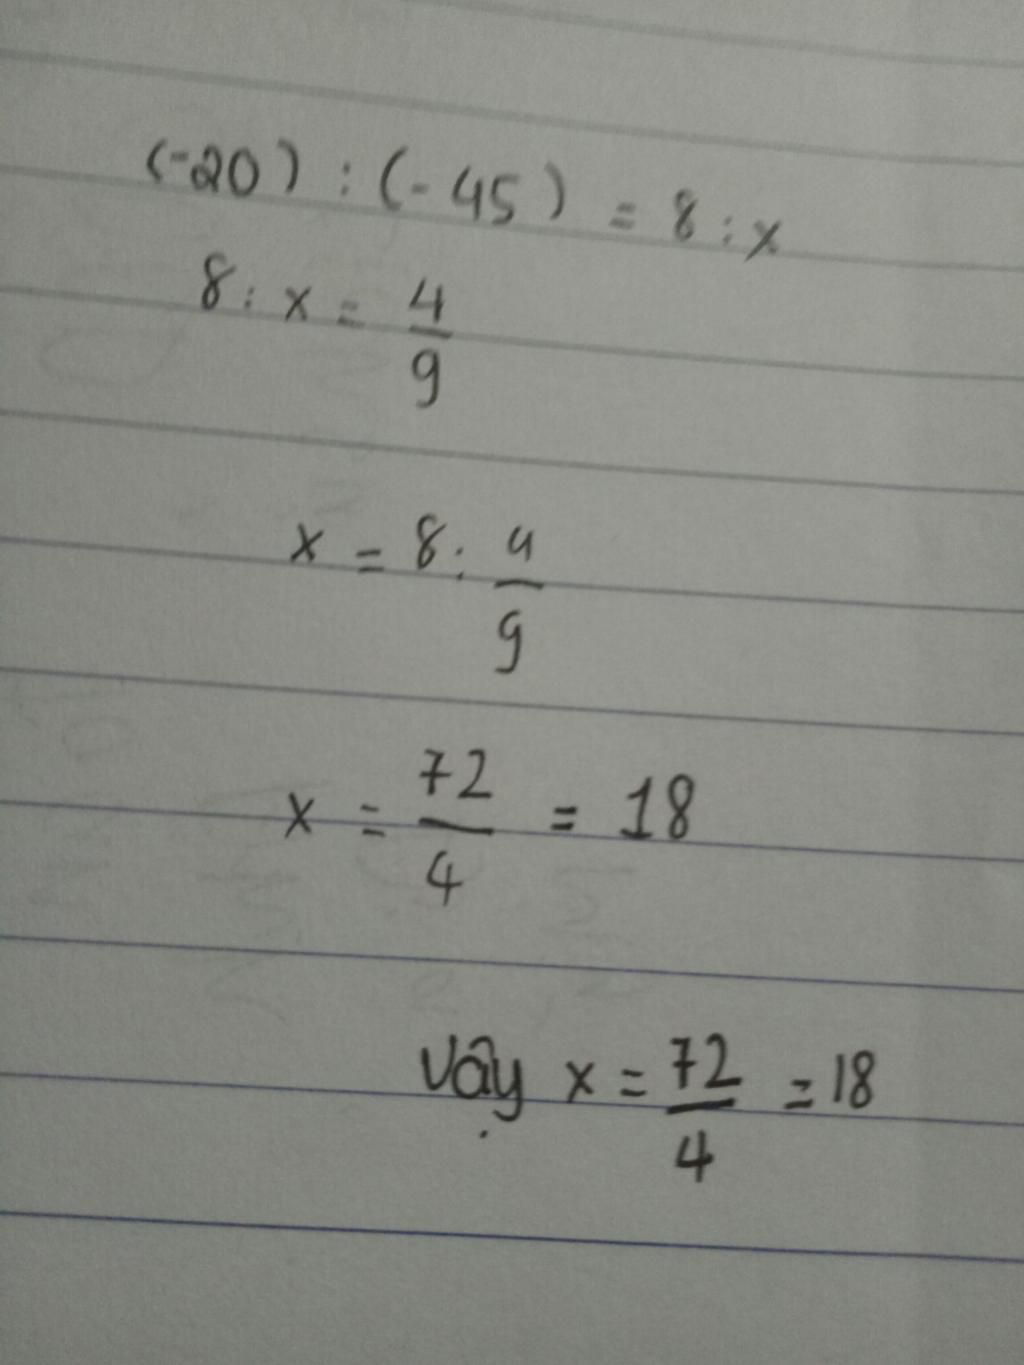 (-20) : (-45) = 8 : x
8 : x = 4/9
x = 8 : 4/9
x = 72/4 = 18
Vậy x = 72/4 = 18